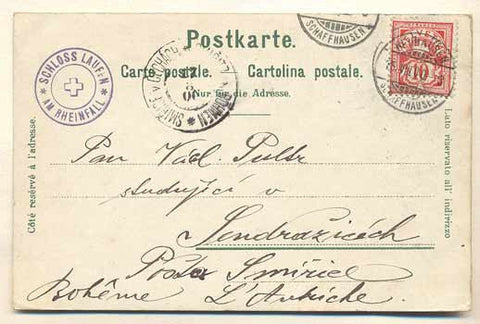 Postkarte.
Carte postale. Cartolina postale.
Nur für die Adresse.
SCHLOSS LAUFEN
AM RHEINFALL
SCHAFFHAUSEN
10
SCHAFFHAUSEN
Côté réservé à l'adresse.
Lato riservato all' indirizzo
Pan Václ.
studující v
Jendražicích
Pošta Smiřice
Bohême L'Autriche.